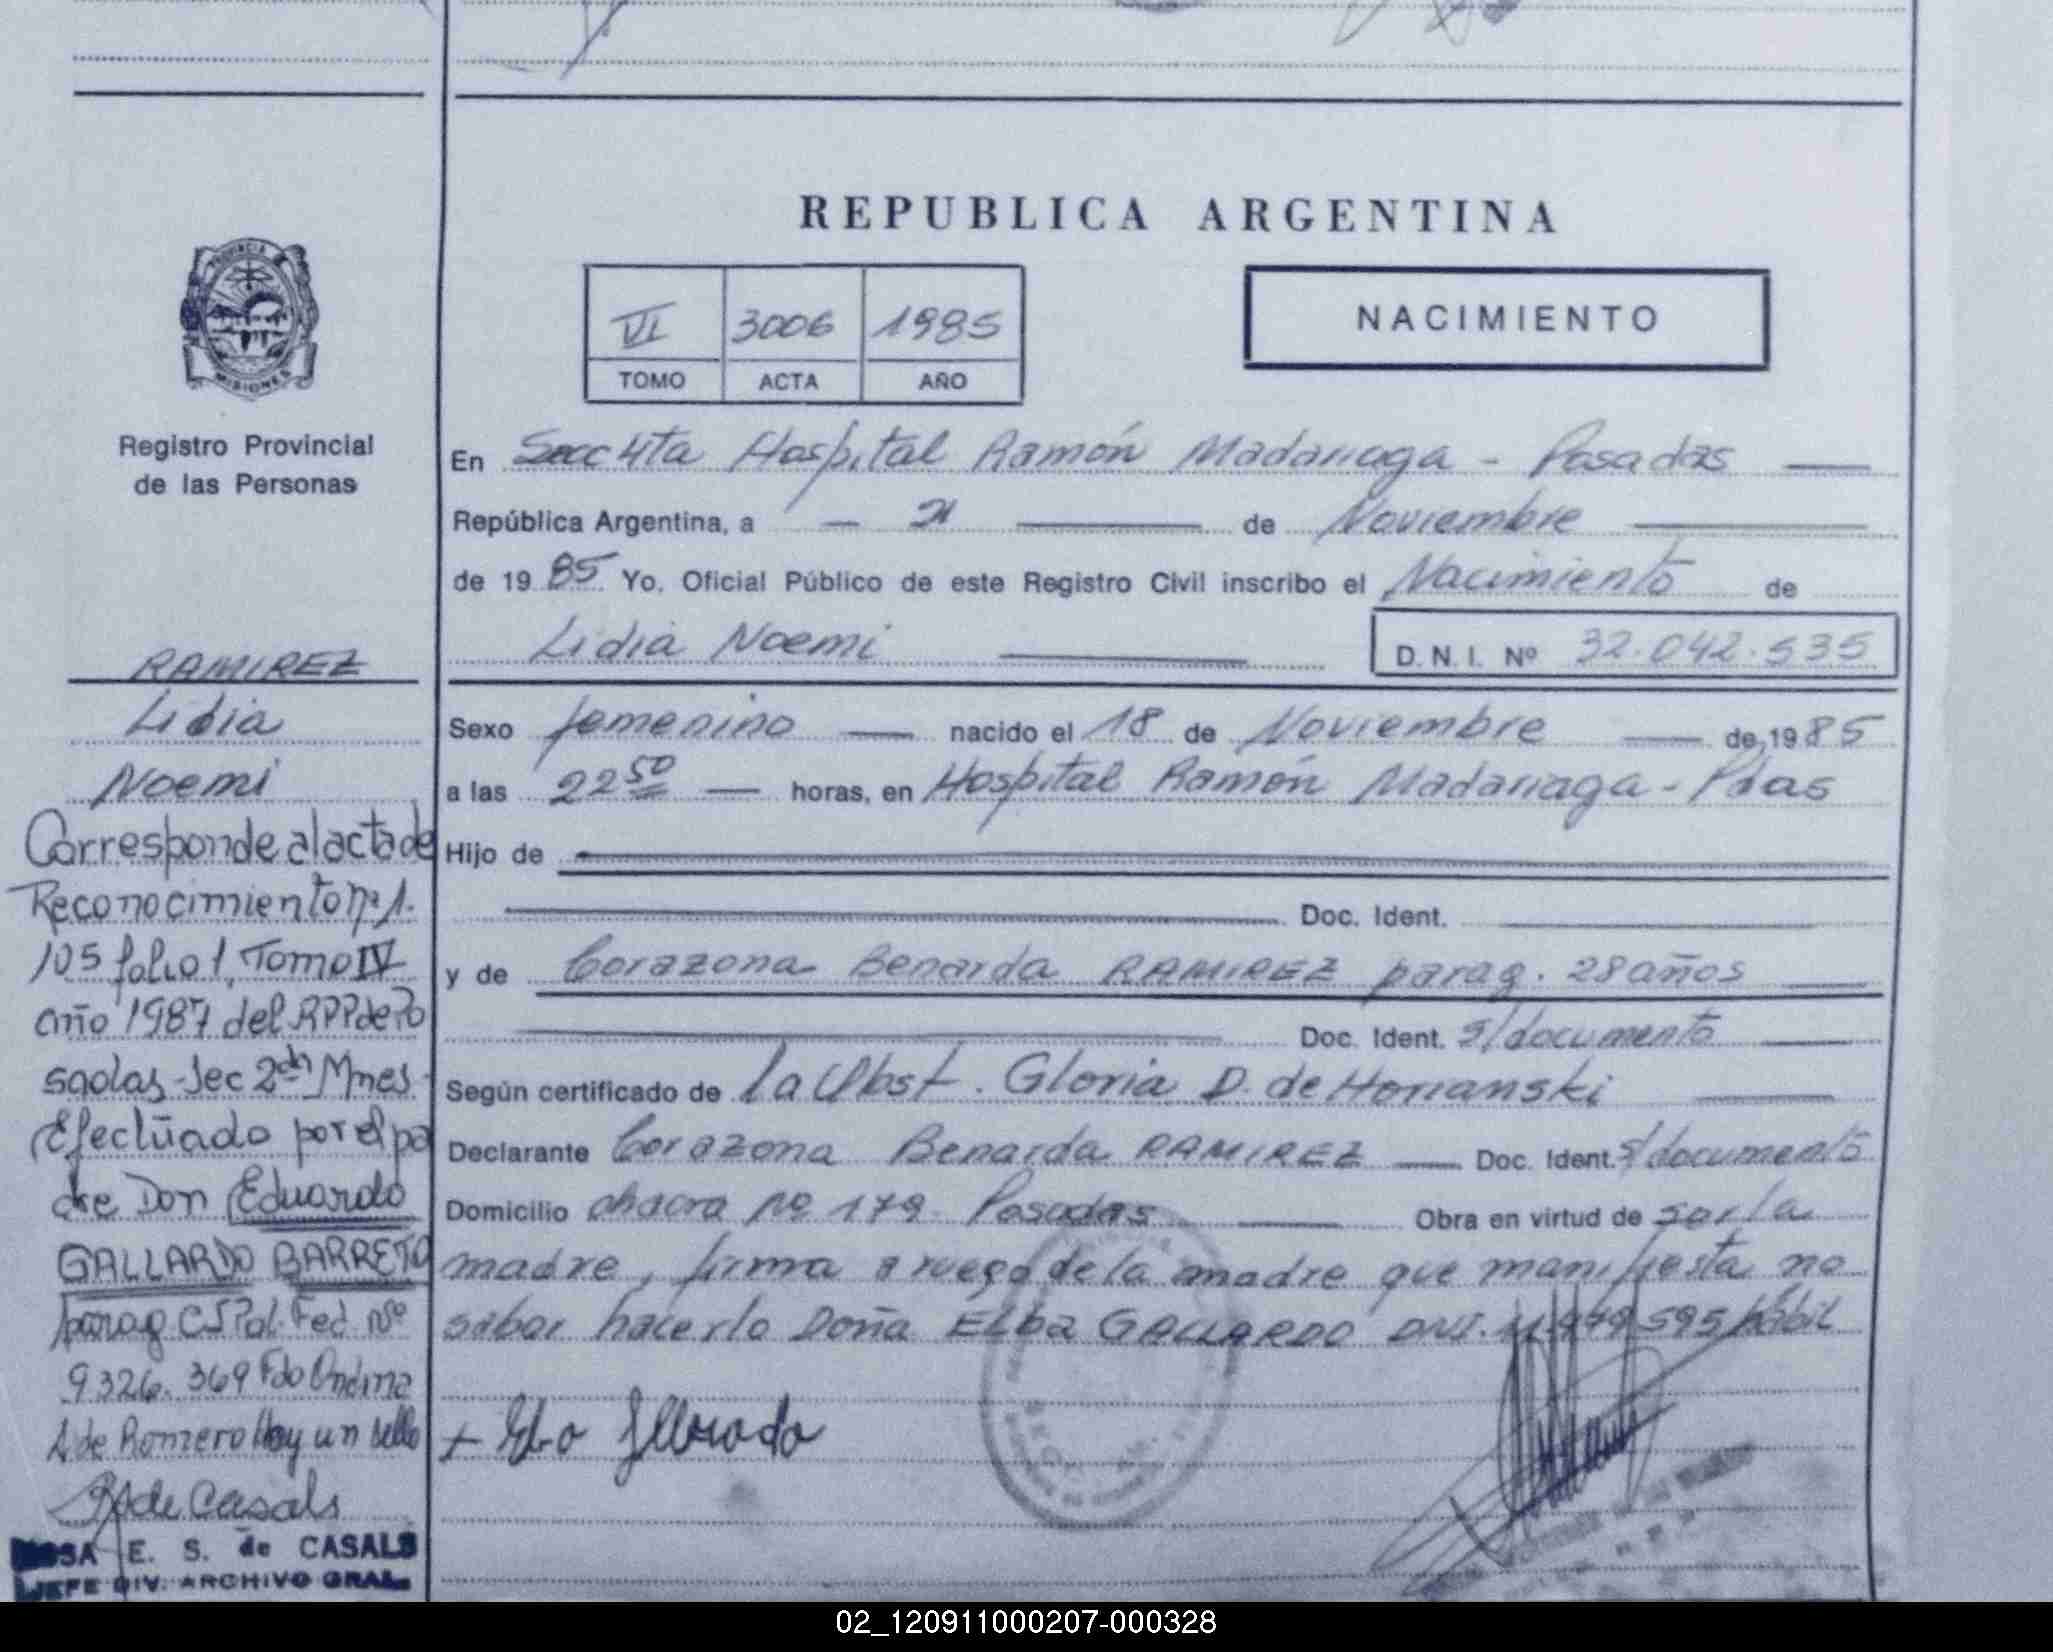 REPUBLICA ARGENTINA
PROVINCIA DE
MISIONES
Registro Provincial
de las Personas
VI 3006 1985
TOMO ACTA AÑO
NACIMIENTO
En Secc 4ta Hospital Ramón Madariaga - Posadas
República Argentina, a - 21 de Noviembre
de 1985 Yo, Oficial Público de este Registro Civil inscribo el Nacimiento de
Lidia Noemi D. N. I. Nº 32.042.535
Sexo femenino nacido el 18 de Noviembre de 1985
a las 22 50 horas, en Hospital Ramón Madariaga - Pdas
Hijo de
Doc. Ident.
y de Corazona Benarda RAMIREZ parag. 28 años
Doc. Ident. s/documento
Según certificado de la Obst. Gloria D. de Horianski
Declarante Corazona Benarda RAMIREZ Doc. Ident. s/documento
Domicilio chacra Nº 179 Posadas Obra en virtud de ser la
madre, firma a ruego de la madre que manifiesta no
saber hacerlo Doña Elba GALLARDO DNI. 11.979.595 hábil
RAMIREZ
Lidia
Noemi
Corresponde al acta de
Reconocimiento nº 1.
105 folio 1, Tomo IV
año 1987 del RPP de Po
sadas - Sec 2da Mnes -
Efectuado por el pa
dre Don Eduardo
GALLARDO BARRETO
parag CI Pol. Fed. Nº
9326.369 Fdo Ondina
A de Romero Hay un sello
de Casals
E. S. de CASALS
JEFE DIV. ARCHIVO GRAL.
02_120911000207-000328